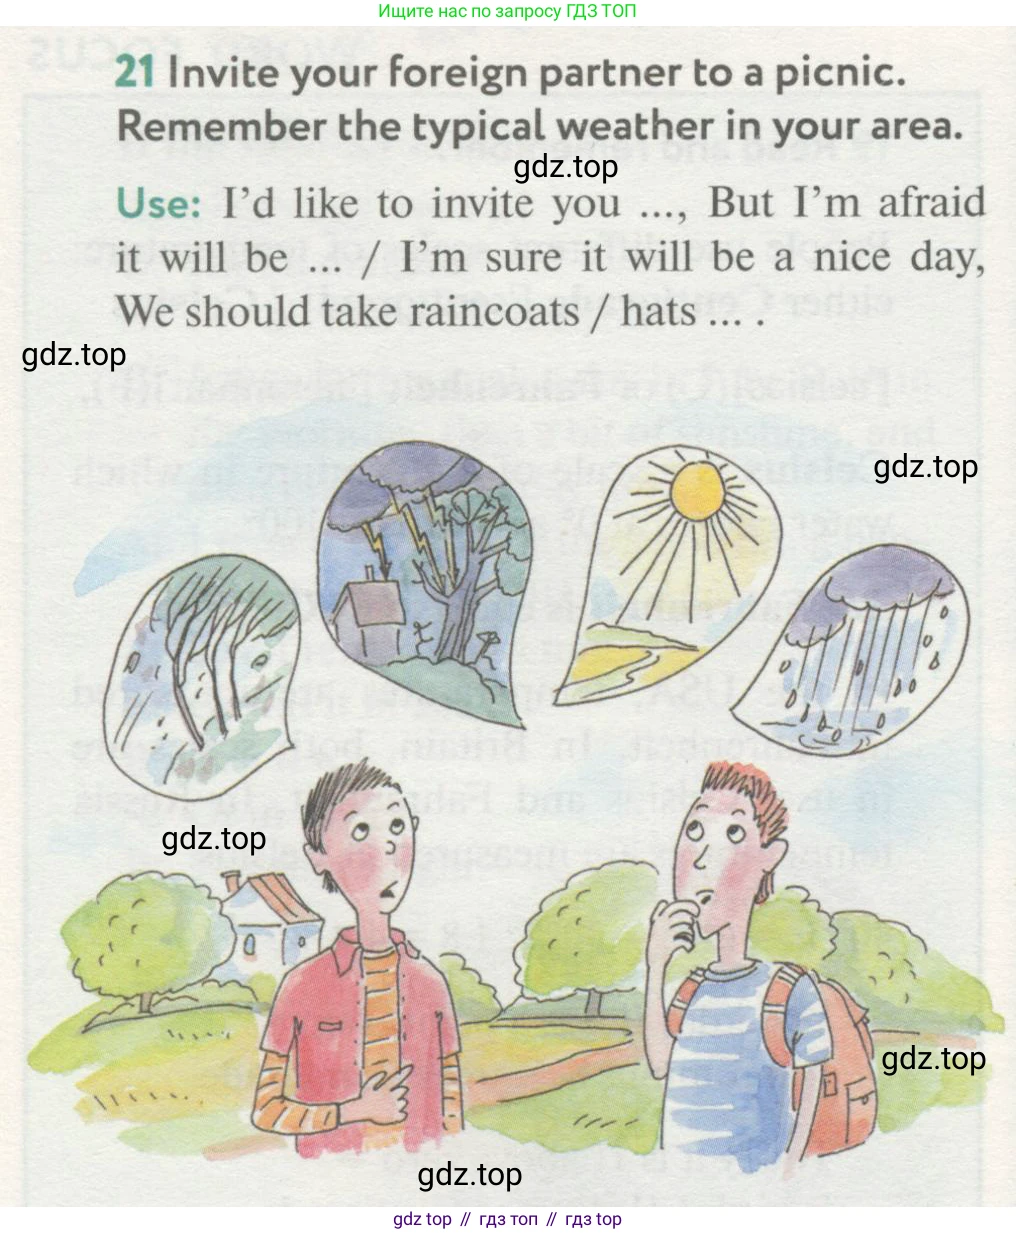 Ищите нас по запросу ГДЗ ТОП
21 Invite your foreign partner to a picnic.
Remember the typical weather in your area.
gdz.top
Use: I’d like to invite you ..., But I’m afraid
it will be ... / I’m sure it will be a nice day,
We should take raincoats / hats ... .
gdz.top
gdz.top
gdz.top
gdz.top
gdz.top
gdz top // гдз топ // гдз top